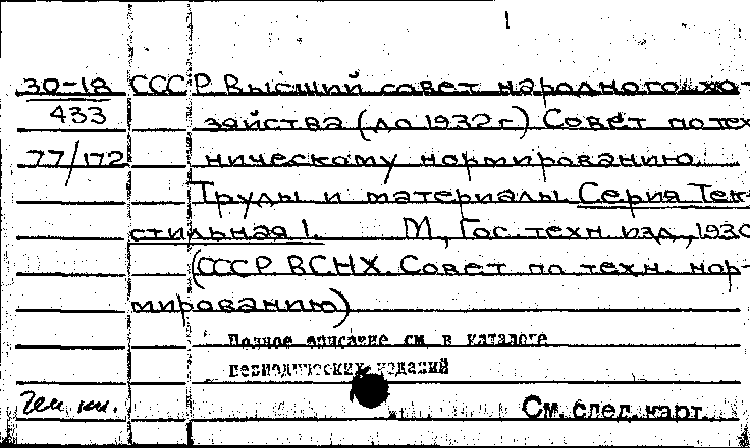 1
30-18 СССР Высший совет народного хо-
433 зяйства (до 1932 г.) Совет по тех
77/172 ническому нормированию.
Труды и материалы Серия Тек-
стильная 1. М., Гос. техн. изд., 1930
(СССР ВСНХ. Совет по техн. нор-
мированию)
Полное описание см. в каталоге
периодических изданий
См. след. карт.